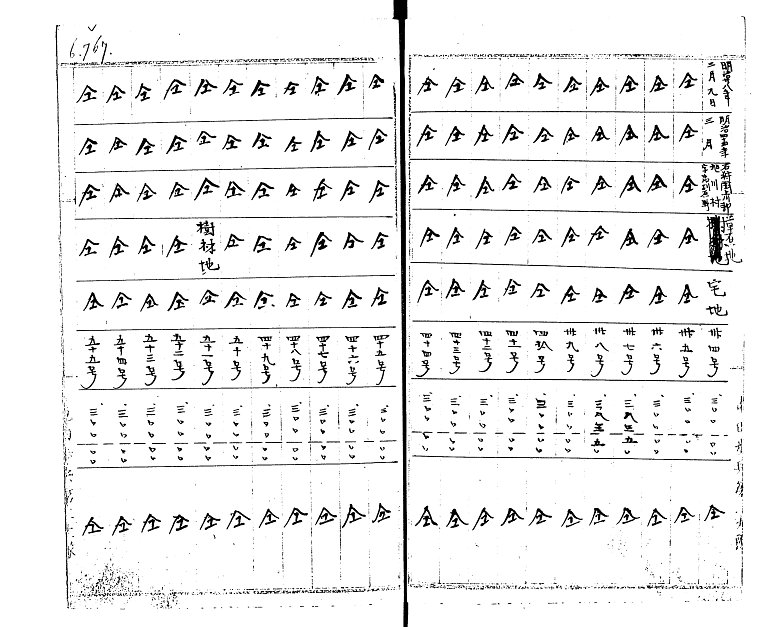 二月九日 三月 宅地 卅四号 三、〇〇〇〇〇 仝
仝 仝 仝 仝 仝 卅五号 三、〇〇〇〇〇 仝
仝 仝 仝 仝 仝 卅六号 三、〇〇〇〇〇 仝
仝 仝 仝 仝 仝 卅七号 仝
仝 仝 仝 仝 仝 卅八号 仝
仝 仝 仝 仝 仝 卅九号 三、〇〇〇〇〇 仝
仝 仝 仝 仝 仝 四十号 三、〇〇〇〇〇 仝
仝 仝 仝 仝 仝 四十一号 三、〇〇〇〇〇 仝
仝 仝 仝 仝 仝 四十二号 三、〇〇〇〇〇 仝
仝 仝 仝 仝 仝 四十三号 三、〇〇〇〇〇 仝
仝 仝 仝 仝 仝 四十四号 三、〇〇〇〇〇 仝
仝 仝 仝 仝 仝 四十五号 三、〇〇〇〇〇 仝
仝 仝 仝 仝 仝 四十六号 三、〇〇〇〇〇 仝
仝 仝 仝 仝 仝 四十七号 三、〇〇〇〇〇 仝
仝 仝 仝 仝 仝 四十八号 三、〇〇〇〇〇 仝
仝 仝 仝 仝 仝 四十九号 三、〇〇〇〇〇 仝
仝 仝 仝 仝 仝 五十号 三、〇〇〇〇〇 仝
仝 仝 仝 樹林地 仝 五十一号 三、〇〇〇〇〇 仝
仝 仝 仝 仝 仝 五十二号 三、〇〇〇〇〇 仝
仝 仝 仝 仝 仝 五十三号 三、〇〇〇〇〇 仝
仝 仝 仝 仝 仝 五十四号 三、〇〇〇〇〇 仝
仝 仝 仝 仝 仝 五十五号 三、〇〇〇〇〇 仝